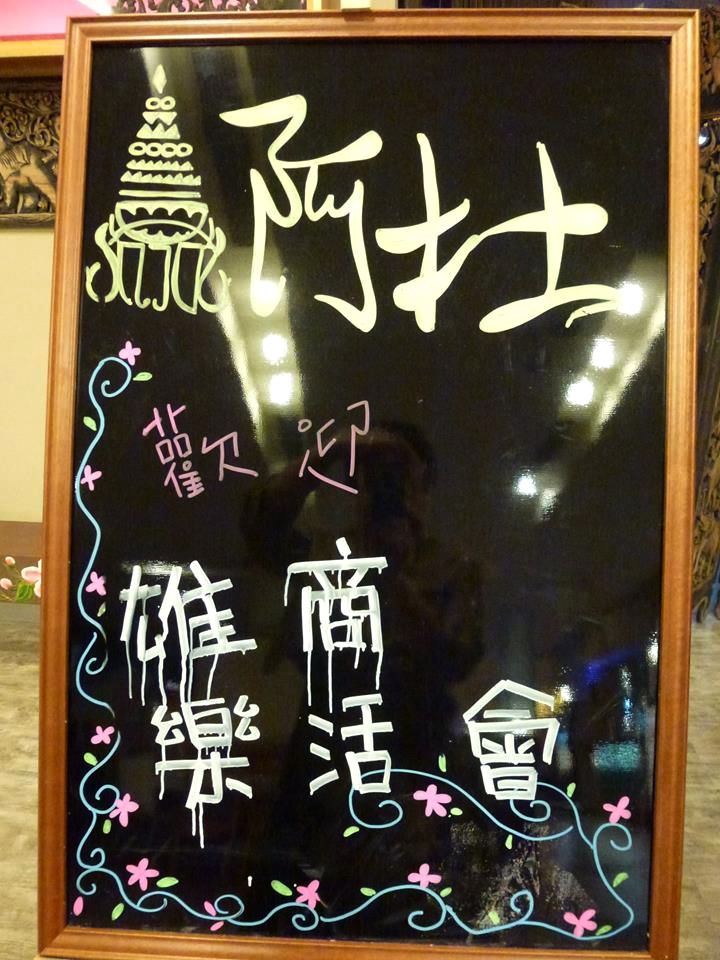 阿杜
歡迎
雄商
樂活會